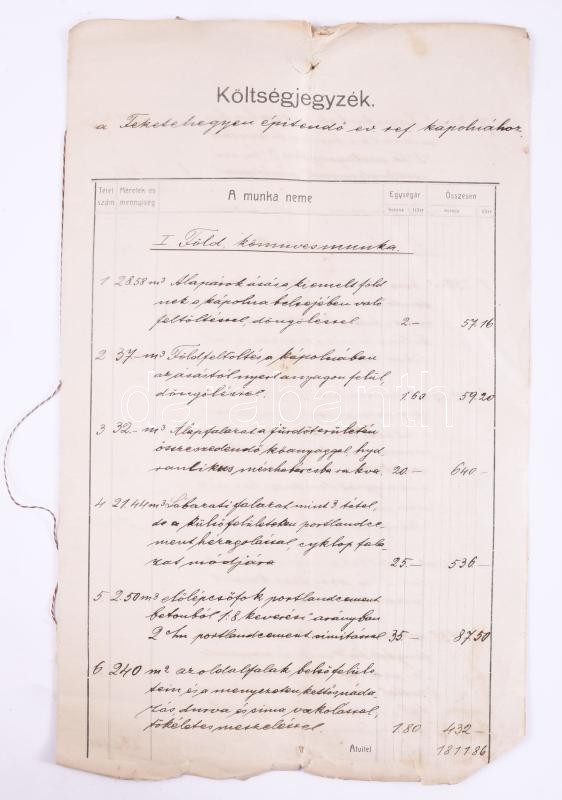 Költségjegyzék.
a Feketehegyen épitendő ev ref kápolnához.
Tétel szám
Méretek és mennyiség
A munka neme
Egységár
Összesen
korona fillér
korona fillér
I Föld, kőmüvesmunka.
1 28.58 m³ Alapárok ásása kiemelt föld
nek a kápolna belsejében való
feltöltéssel, döngöléssel. 2.- 57.16
2 37.- m³ Földfeltöltés a kápolnában
az ásástól nyert anyagon felül,
döngöléssel. 1.60 59.20
3 32.- m³ Alapfalazat a fürdőterületén
összeszedendő kőanyaggal, hyd
raulikus mészhabarcsba rakva. 20.- 640.-
4 21.44 m³ Lábazati falazat mint 3. tétel,
de a külső felületeken portlandce-
ment hézagolással, cyklop fala-
zat módjára 25.- 536.-
5 2.50 m³ Előlépcsőfok portlandcement
betonból 1:8 keverési arányban
2 c/m portlandcement simítással 35.- 87.50
6 240 m² az oldalfalak belső felüle-
tein és a menyezeten kettős náda-
zás durva és sima vakolással,
tökéletes meszeléssel. 1.80 432.-
Átvitel 1811.86
darabanth